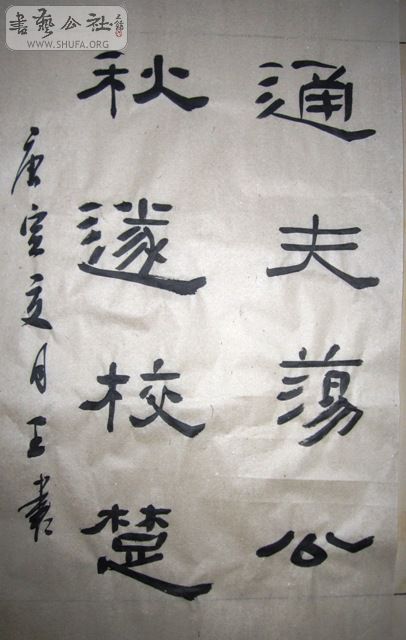 書藝公社
WWW.SHUFA.ORG
通夫蕩公
秋遂校楚
庚寅亥月王書